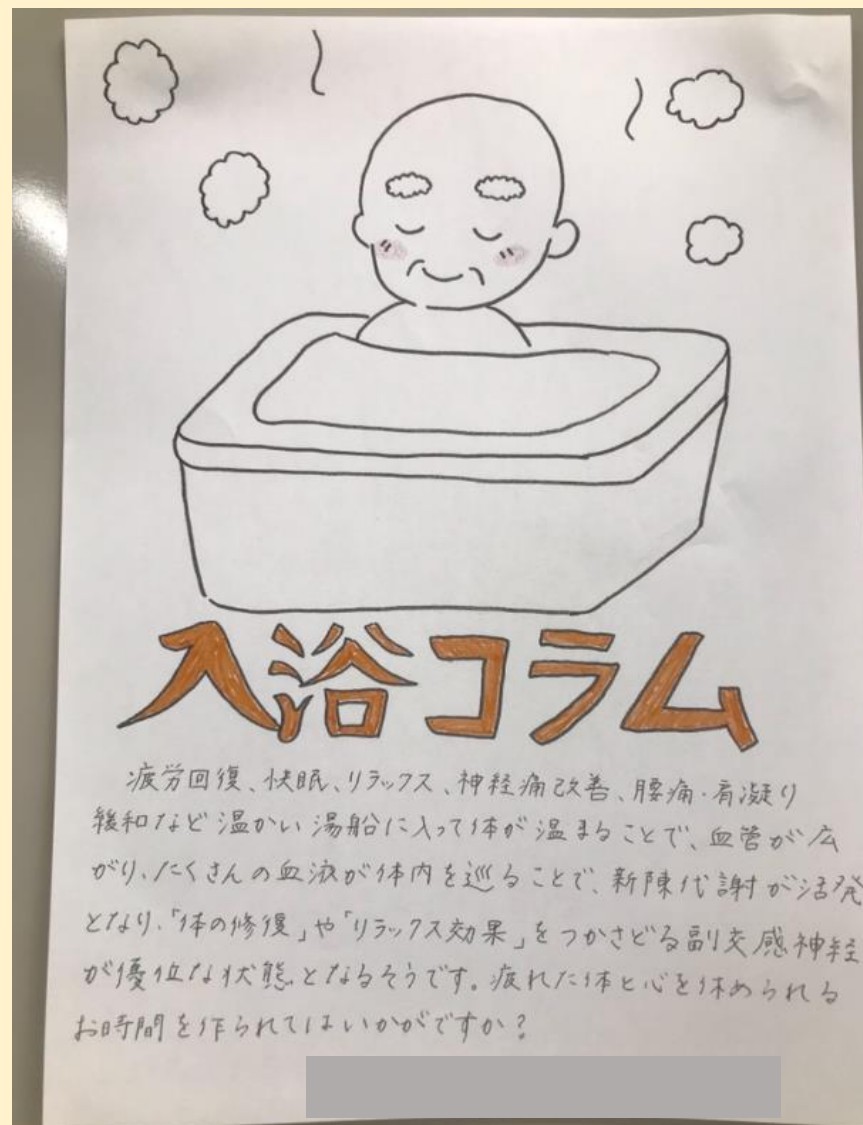 入浴コラム
疲労回復、快眠、リラックス、神経痛改善、腰痛・肩凝り
緩和など温かい湯船に入って体が温まることで、血管が広
がり、たくさんの血液が体内を巡ることで、新陳代謝が活発
となり、「体の修復」や「リラックス効果」をつかさどる副交感神経
が優位な状態となるそうです。疲れた体と心を休められる
お時間を作られてはいかがですか？